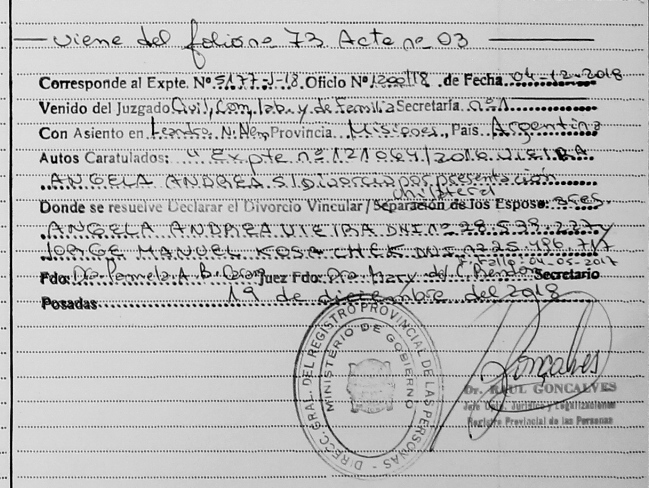 viene del folio no 73 Acta no 03
Corresponde al Expte. Nº 5177-J-18 Oficio Nº 1200/18 de Fecha 04-12-2018
Venido del Juzgado Civil, Com, Lab. y de Familia Secretaría nº 1
Con Asiento en Leandro N. Alem Provincia Misiones, País Argentina
Autos Caratulados: "Expte nº 121064/2016 VIEIRA
ANGELA ANDREA S/ Divorcio por presentación
unilateral
Donde se resuelve Declarar el Divorcio Vincular/Separación de los Esposos: Sres.
ANGELA ANDREA VIEIRA DNI nº 28.539.227 y
JORGE MANUEL KOSACHEK DNI nº 25.486.717
F. fallo: 04-05-2017
Fdo: Dra. Pamela A. B. Juez Fdo: Dra. Mary del C. Secretario
Posadas 19 de diciembre del 2018
DIRECC. GRAL. DEL REGISTRO PROVINCIAL DE LAS PERSONAS
MINISTERIO DE GOBIERNO
Goncalves
Dr. RAUL GONCALVES
Jefe Jurídico y Legalizaciones
Registro Provincial de las Personas